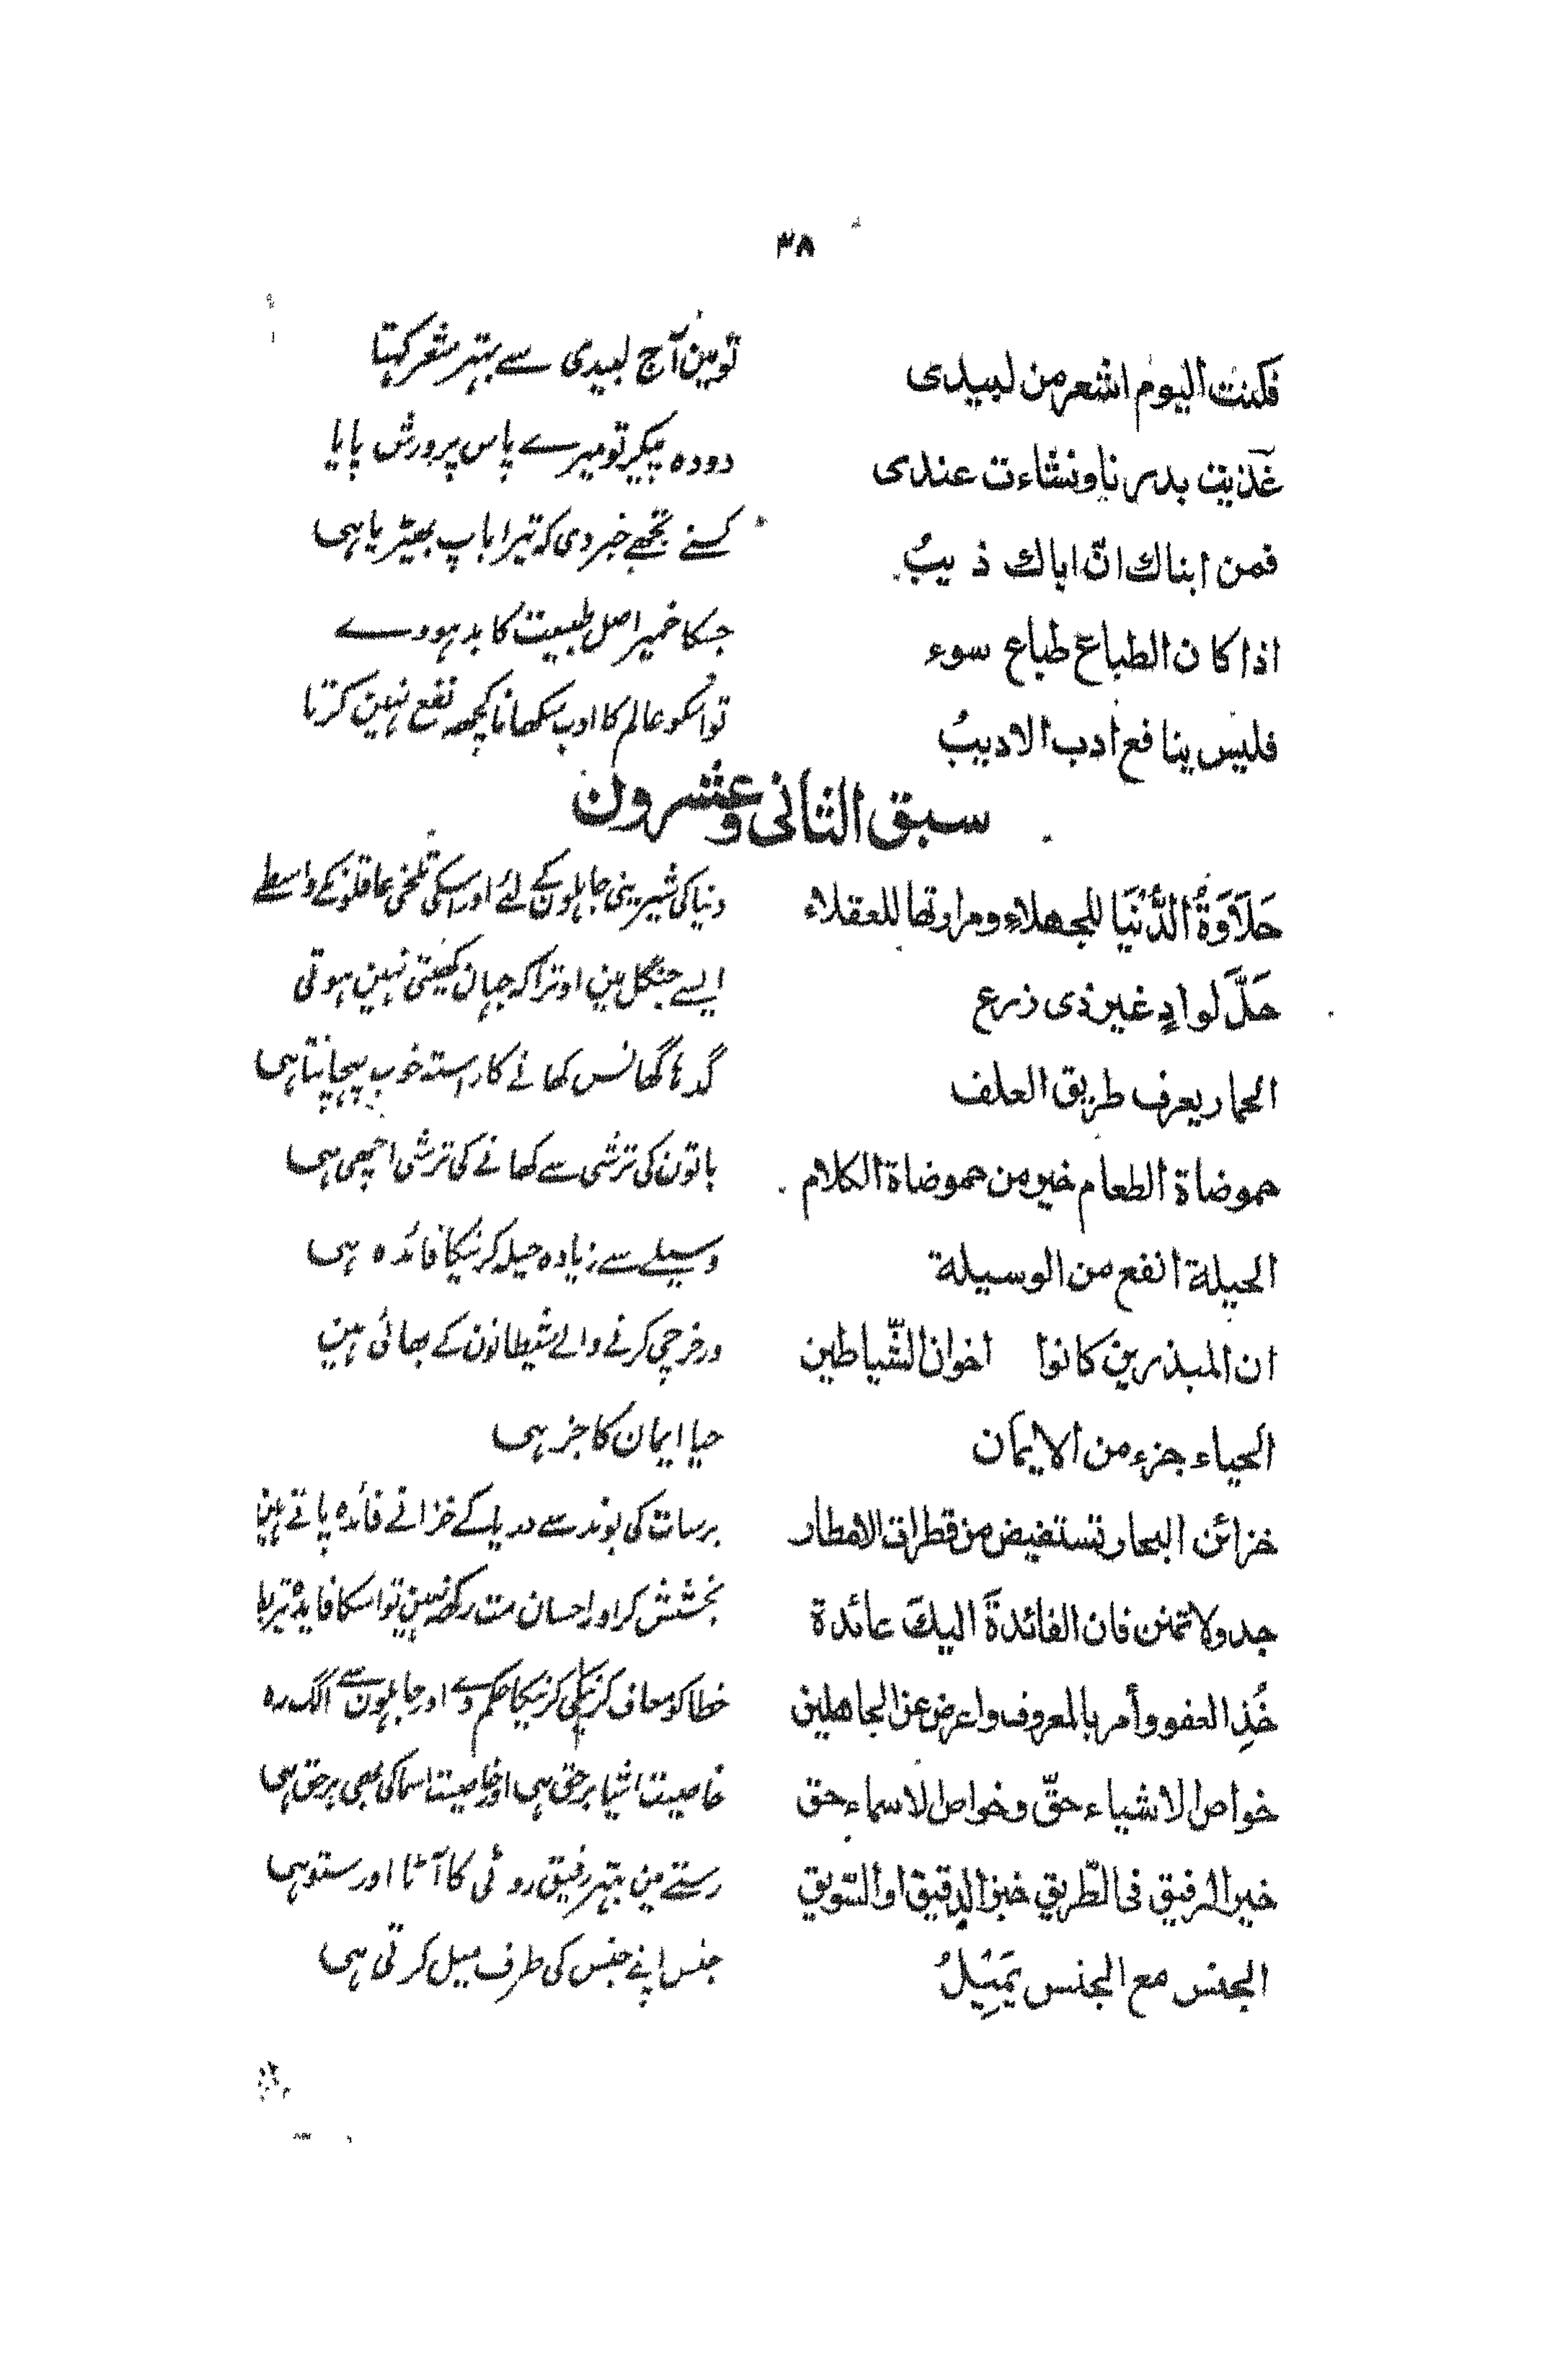 ٣٨
فکنت الیوم اشعر من لبیدی تو مین آج لبیدی سے بہتر شعر کہتا
غذیت بدرنا ونشاءت عندی دودہ پیکر تو میرے پاس پرورش پایا
فمن ابناك انّ اباك ذیبُ کسنے تجھے خبر دی کہ تیرا باپ بھیڑیا ہی
اذا کان الطباع طباع سوء جسکا خمیر اصل طبیعت کا بد ہووے
فلیس ینافع ادب الادیبُ تو اُسکو عالم کا ادب سکھانا کچھ نفع نہین کرتا
سبق الثانی وعشرون
حَلَاوَةُ الدُّنْیَا للجهلاء ومرارتها للعقلاء دنیا کی شیرینی جاہلون کے لئے اور اسکی تلخی عاقلونکے واسطے
حَلَّ لوادٍ غیر ذی زرع ایسے جنگل مین اوترا کہ جہان کھیتی نہین ہوتی
الحمار یعرف طریق العلف گدہا گھانس کھانے کا راستہ خوب پہچانتا ہی
حموضاة الطعام خیر من حموضاة الکلام باتون کی ترشی سے کھانے کی ترشی اچھی ہی
الحیلة انفع من الوسیلة وسیلے سے زیادہ حیلہ کرنیکا فائدہ ہی
ان المبذرین کانوا اخوان الشّیاطین ورخرچی کرنے والے شیطانون کے بھائی ہین
الحیاء جزء من الایمان حیا ایمان کا جز ہی
خزائن البحار تستفیض من قطرات الامطار برسات کی بوند سے دریا کے خزانے فائدہ پاتے ہین
جد ولا تمنن فان الفائدةَ الیكَ عائدة بخشش کر اور احسان مت رکھ نہین تو اسکا فایدہ تیریا
خُذِ العفو وأمر بالمعروف واعرض عن الجاهلین خطا کو معاف کر نیکی کرنیکا حکم دے اور جاہلون سے الگ رہ
خواص الاشیاء حقّ وخواص الاسماء حق خاصیت اشیا برحق ہی اور خاصیت اسما کی بھی برحق ہی
خیر الرفیق فی الطّریق خبز الدقیق او السّویق رستے مین بہتر رفیق روٹی کا آٹا اور ستو ہی
الجنس مع الجنس یَمِیْلُ جنس اپنے جنس کی طرف میل کرتی ہی